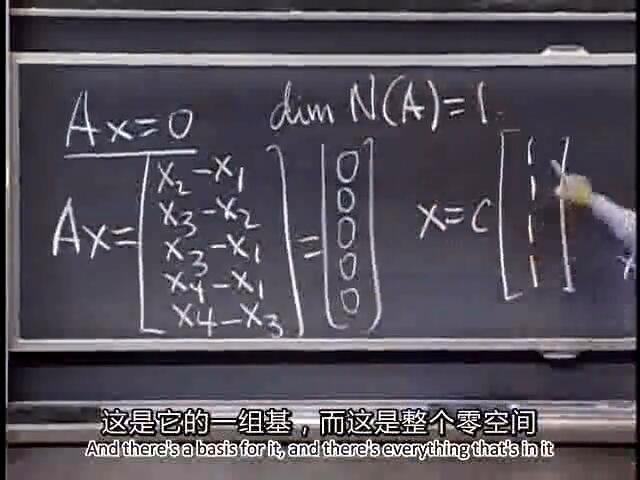 Ax=0
dim N(A)=1.
Ax=
x₂-x₁
x₃-x₂
x₃-x₁
x₄-x₁
x₄-x₃
=
0
0
0
0
0
x=c
1
1
1
1
x
这是它的一组基，而这是整个零空间
And there's a basis for it, and there's everything that's in it